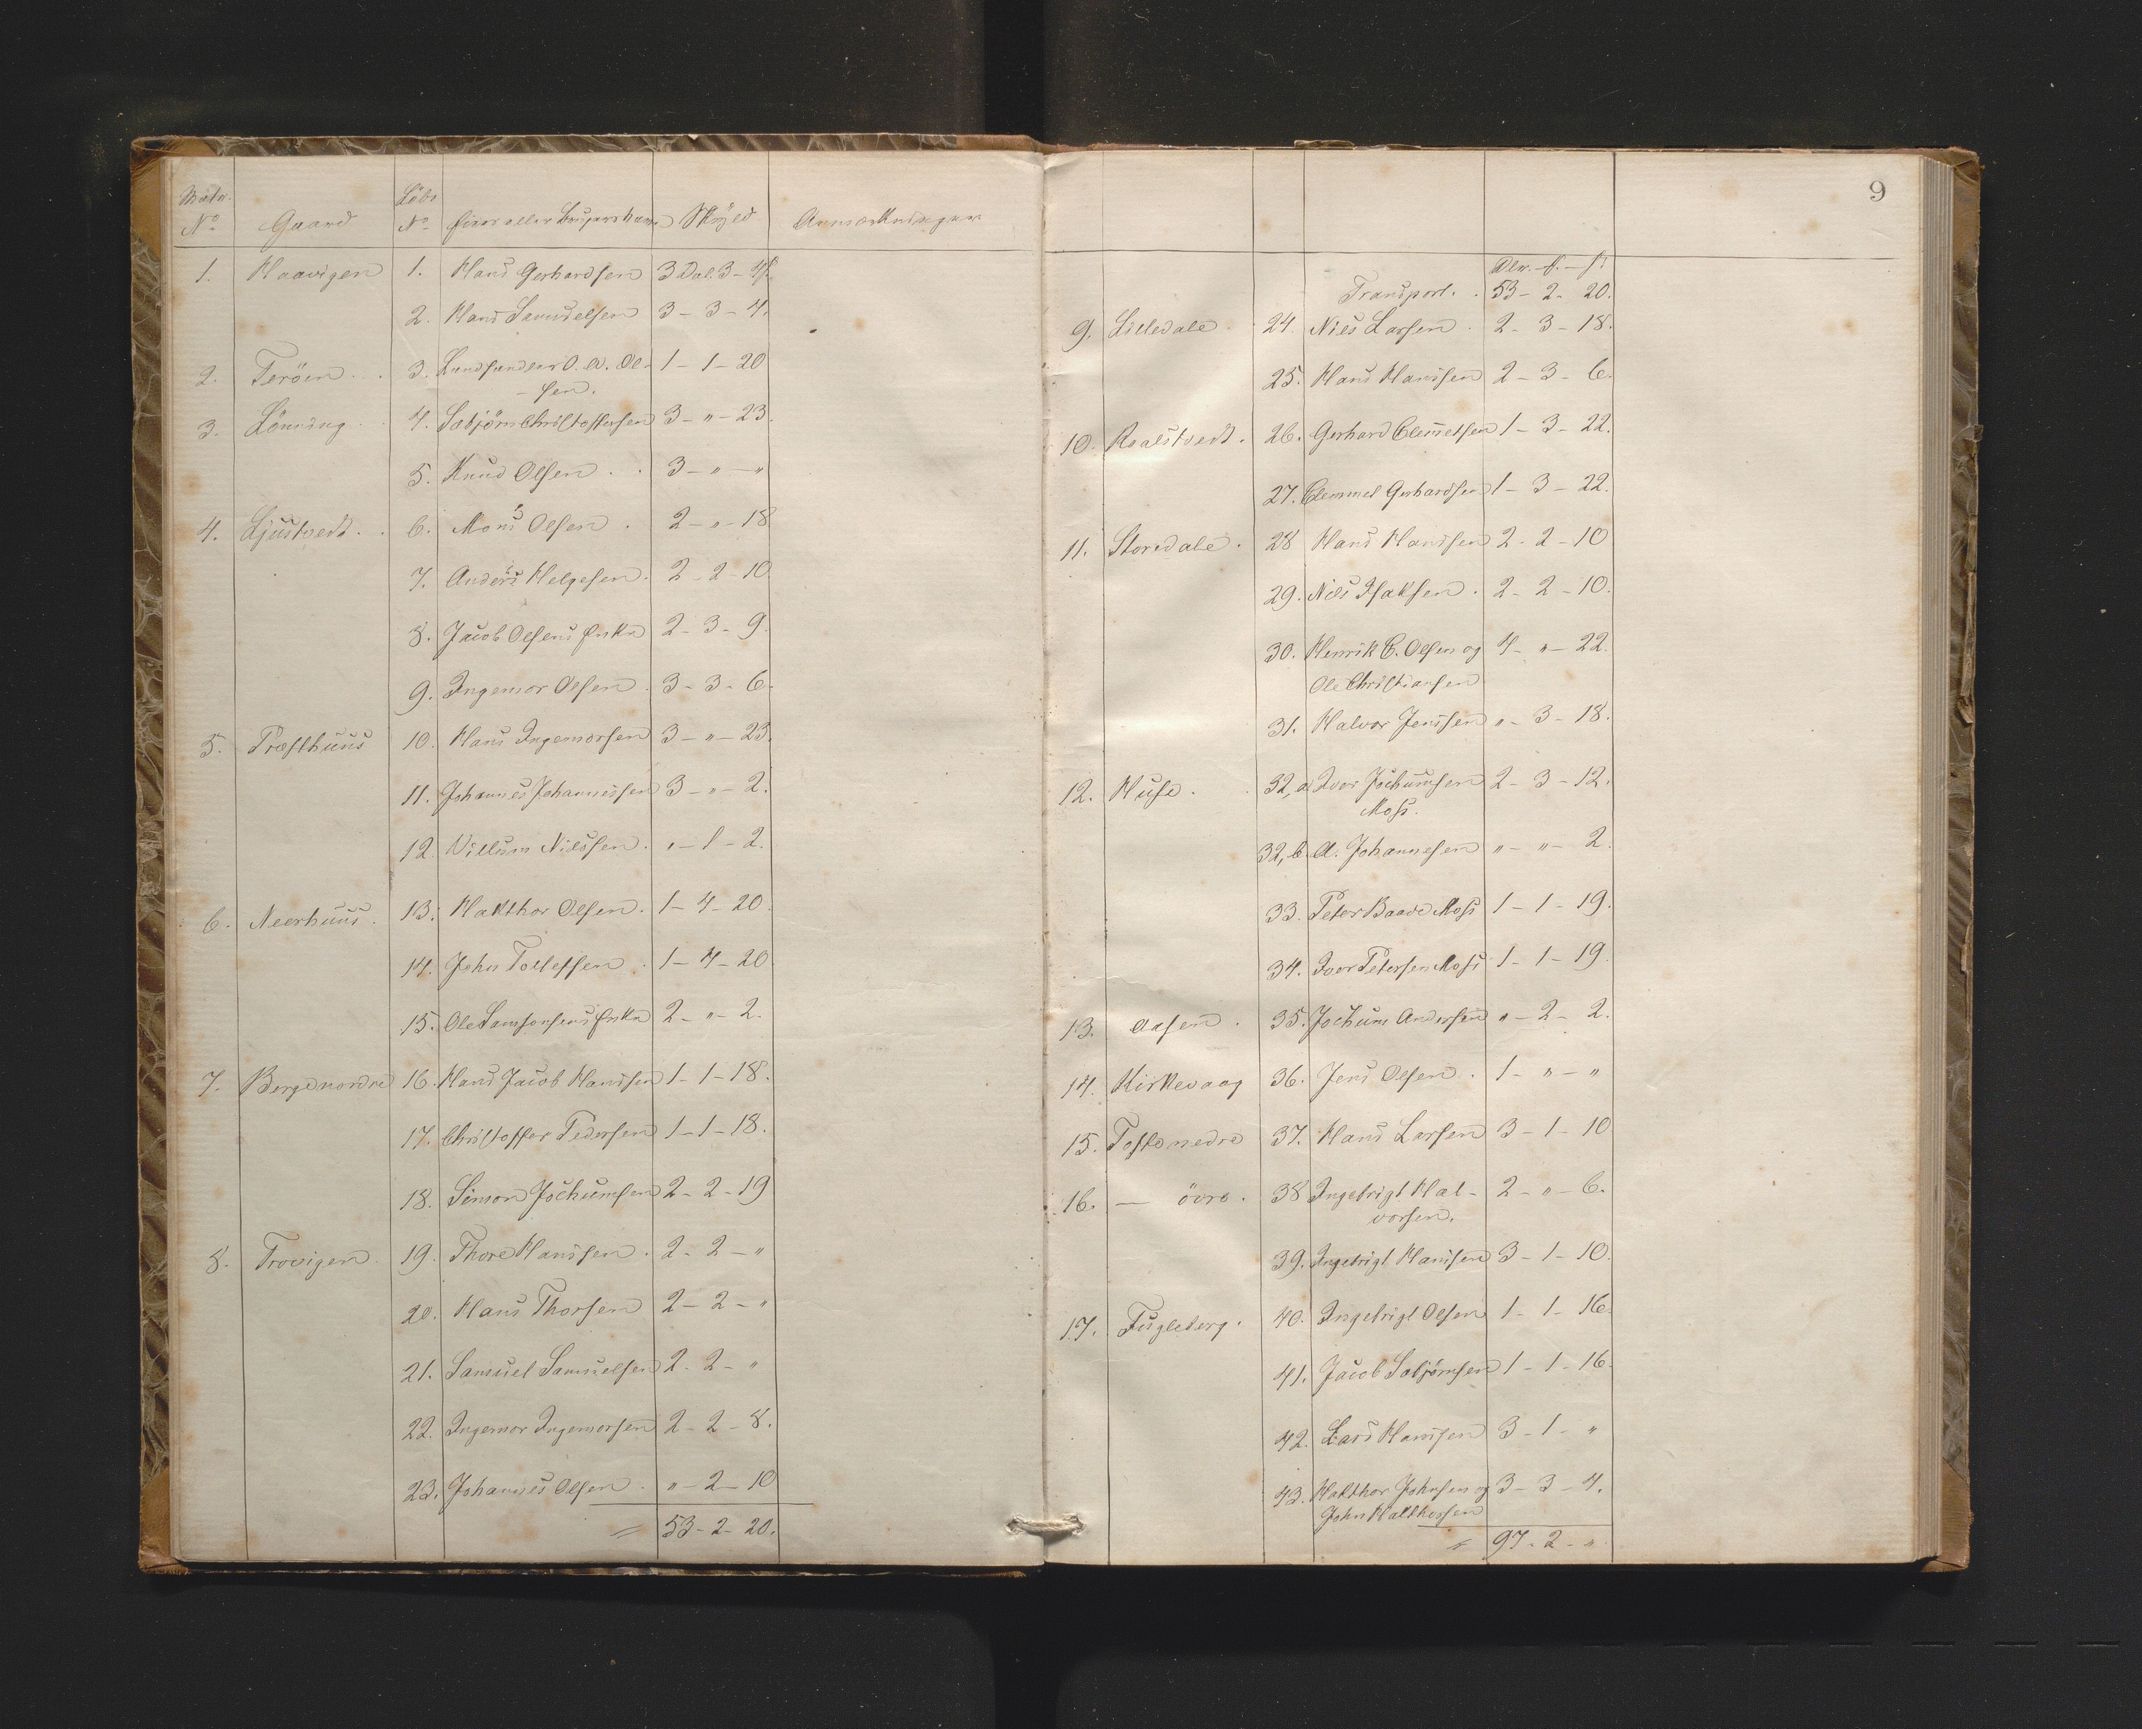 Matr. Löbe
No Gaard No Eiers eller Brugers Navn Skyld Anmærkninger
1. Haavigen 1. Hans Gerhardsen 3 Dal. 3 - 4 s.
2. Hans Samuelsen 3 - 3 - 4.
2. Teröen . . 3. Landhandler O. A. Ol- 1 - 1 - 20
- sen.
3. Löning . . 4. Sæbjörn Christoffersen 3 - " - 23.
5. Knud Olsen . . 3 - " - "
4. Ljustvedt . . 6. Mons Olsen . 2 - " - 18
7. Anders Helgesen . 2 - 2 - 10
8. Jacob Olsens Enke 2 - 3 - 9.
9. Ingemor Olsen . 3 - 3 - 6.
5. Præsthuus 10. Hans Ingemorsen 3 - " - 23.
11. Johannes Johannessen 3 - " - 2.
12. Villum Nilssen . " - 1 - 2.
6. Neerhuus . 13. Hakthor Olsen . 1 - 4 - 20.
14. John Tollefsen . 1 - 4 - 20
15. Ole Samsonsens Enke 2 - " - 2.
7. Berge nordre 16. Hans Jacob Hanssen 1 - 1 - 18.
17. Christoffer Pedersen 1 - 1 - 18.
18. Simon Jochumsen 2 - 2 - 19
8. Trovigen . 19. Thore Hanssen . 2 - 2 - "
20. Hans Thorsen 2 - 2 - "
21. Samuel Samuelsen 2 - 2 - "
22. Ingemor Ingemorsen 2 - 2 - 8.
23. Johannes Olsen . " - 2 - 10
= 53 - 2 - 20.
9
Dlr. - s. - s.
Transport . . 53 - 2 - 20.
9. Lilledale . 24. Niels Larsen . 2 - 3 - 18.
25. Hans Hanssen 2 - 3 - 6.
10. Roalstvedt . 26. Gerhard Clemetsen 1 - 3 - 22.
27. Clemmet Gerhardsen 1 - 3 - 22.
11. Storedale . 28 Hans Hanssen 2 - 2 - 10
29. Nils Isaksen . 2 - 2 - 10.
30. Henrik C. Olsen og 4 - " - 22.
Ole Christiansen
31. Halvor Jenssen " - 3 - 18.
12. Huse . . 32, a Iver Jochumsen 2 - 3 - 12.
Moss.
32, b. A. Johannesen " - " - 2.
33. Peter Baade Moss 1 - 1 - 19.
34. Iver Petersen Moss 1 - 1 - 19.
13. Aasen . 35. Jochum Andersen " - 2 - 2.
14. Kirkevaag 36. Jens Olsen . 1 - " - "
15. Tofte nedre 37. Hans Larsen 3 - 1 - 10
16. — övre . 38 Ingebrigt Hal- 2 - " - 6.
vorsen.
39. Ingebrigt Hanssen 3 - 1 - 10.
17. Fugleberg . 40. Ingebrigt Olsen 1 - 1 - 16.
41. Jacob Sæbjörnsen 1 - 1 - 16.
42. Lars Hanssen 3 - 1 - "
43. Hakthor Johnsen og 3 - 3 - 4.
John Hakthorsen
= 97 - 2 - "